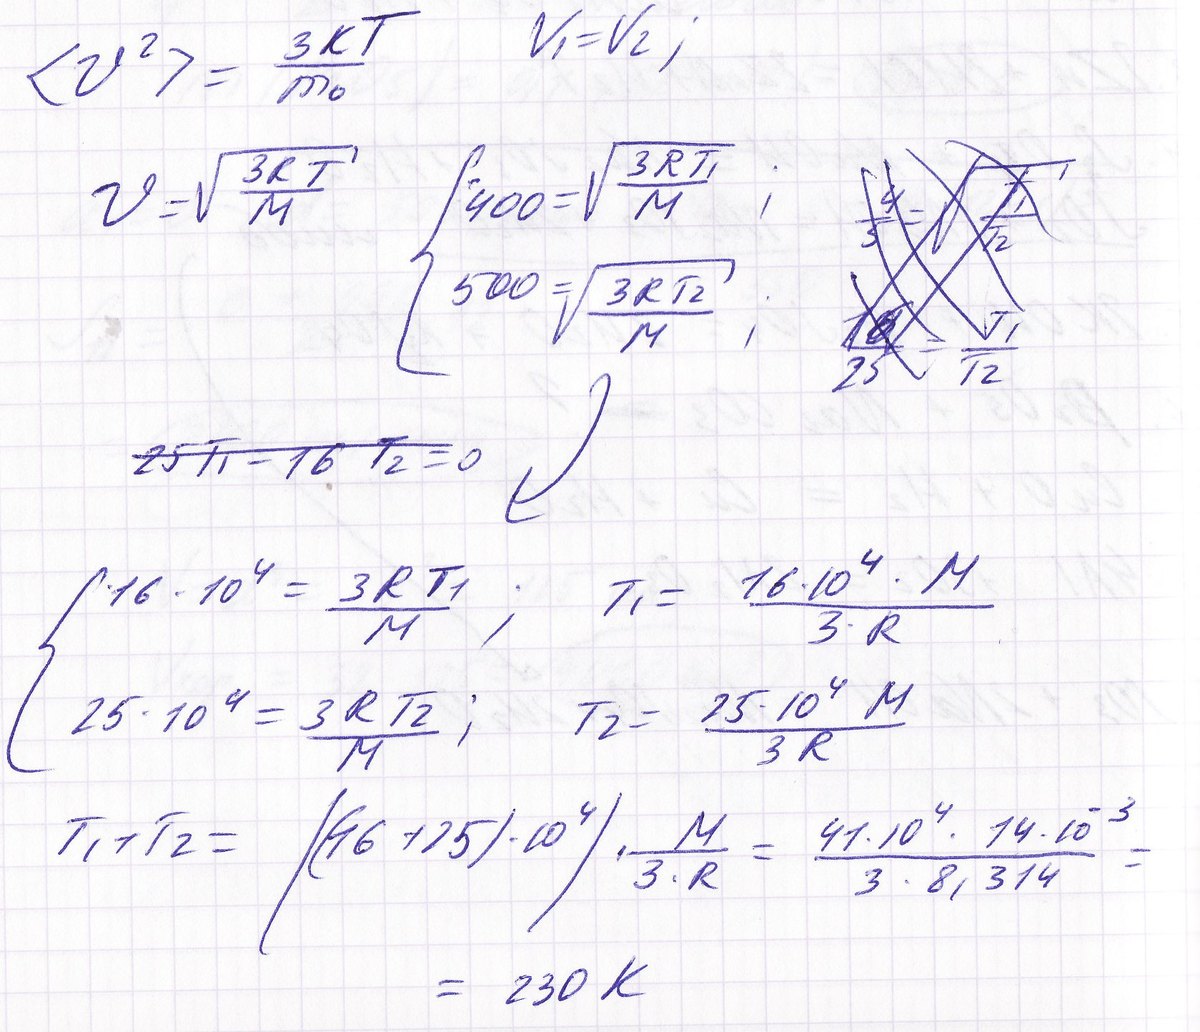 <v²> = 3KT/m₀   V₁ = V₂ ;
v = √(3RT/M)   { 400 = √(3RT₁/M) ;   4/5 = √(T₁/T₂)
500 = √(3RT₂/M) ;   16/25 = T₁/T₂
25T₁ - 16 T₂ = 0
{ 16 · 10⁴ = 3RT₁/M ;   T₁ = 16·10⁴ · M/3·R
25 · 10⁴ = 3RT₂/M ;   T₂ = 25·10⁴ M/3R
T₁ + T₂ = ((16 + 25) · 10⁴) · M/3·R = 41·10⁴ · 14·10⁻³/3 · 8,314 =
= 230 K